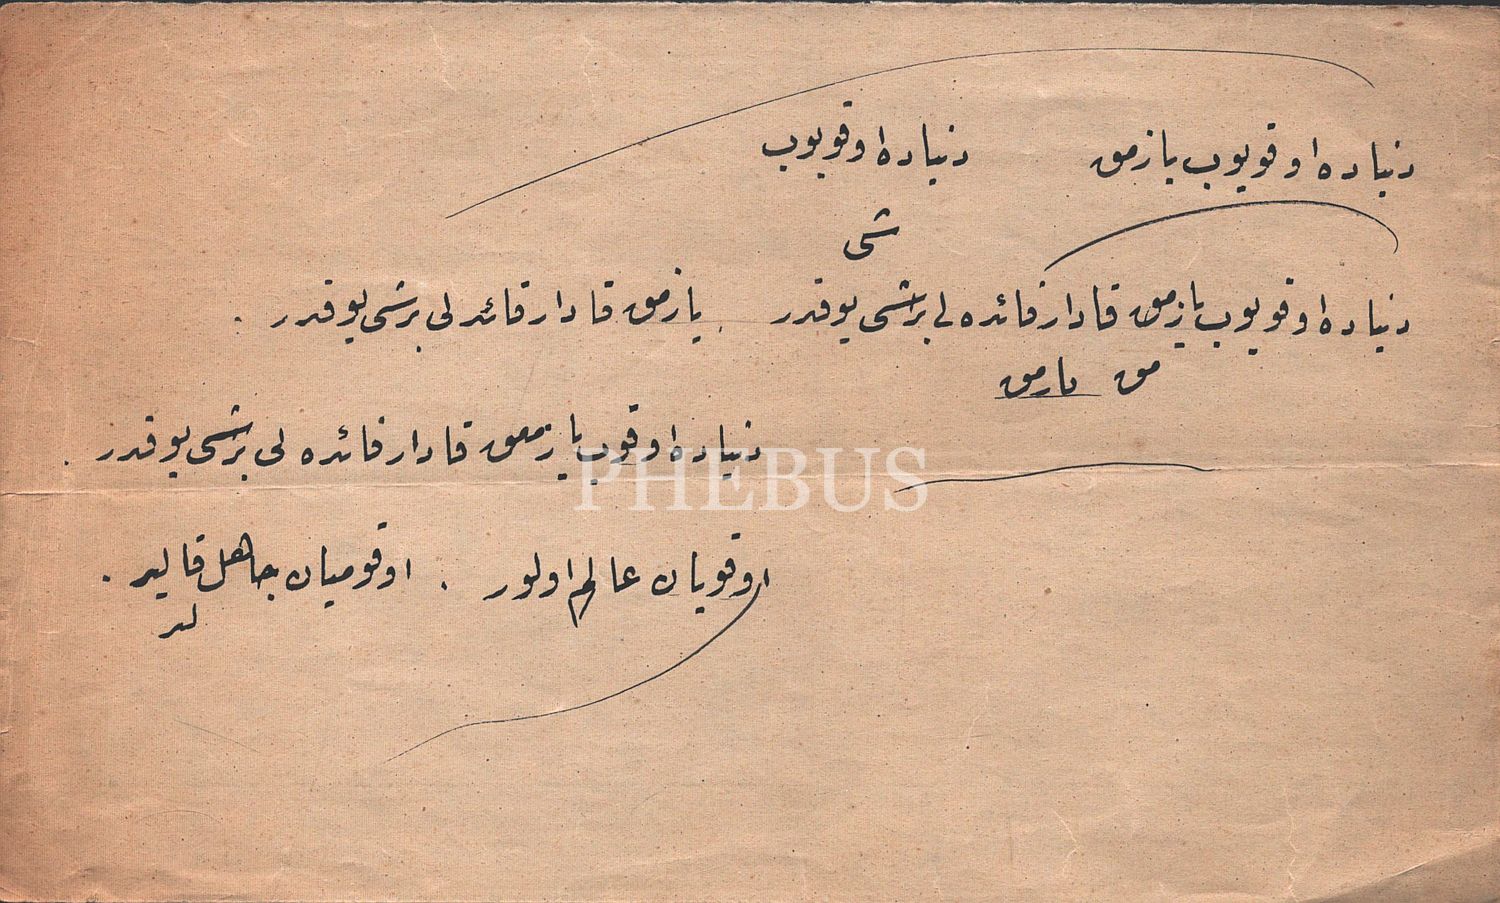 دنیاده اوقویوب یازمق دنیاده اوقویوب
شی
دنیاده اوقویوب یازمق قادار فائده لی برشی یوقدر . یازمق قادار فائده لی برشی یوقدر .
مق یازمق
دنیاده اوقوب یازمق قادار فائده لی برشی یوقدر .
PHEBUS
اوقویان عالم اولور . اوقومیان جاهل قالیر .
لیر